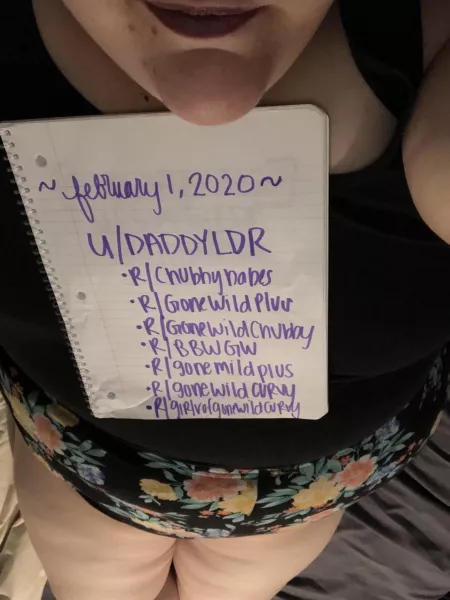 ~ february 1, 2020 ~
U/DADDYLDR
• R/Chubbybabes
• R/GoneWildPlus
• R/GoneWildChubby
• R/BBWGW
• R/gonemildplus
• R/gonewildcurvy
• R/girlsofgonewildcurvy